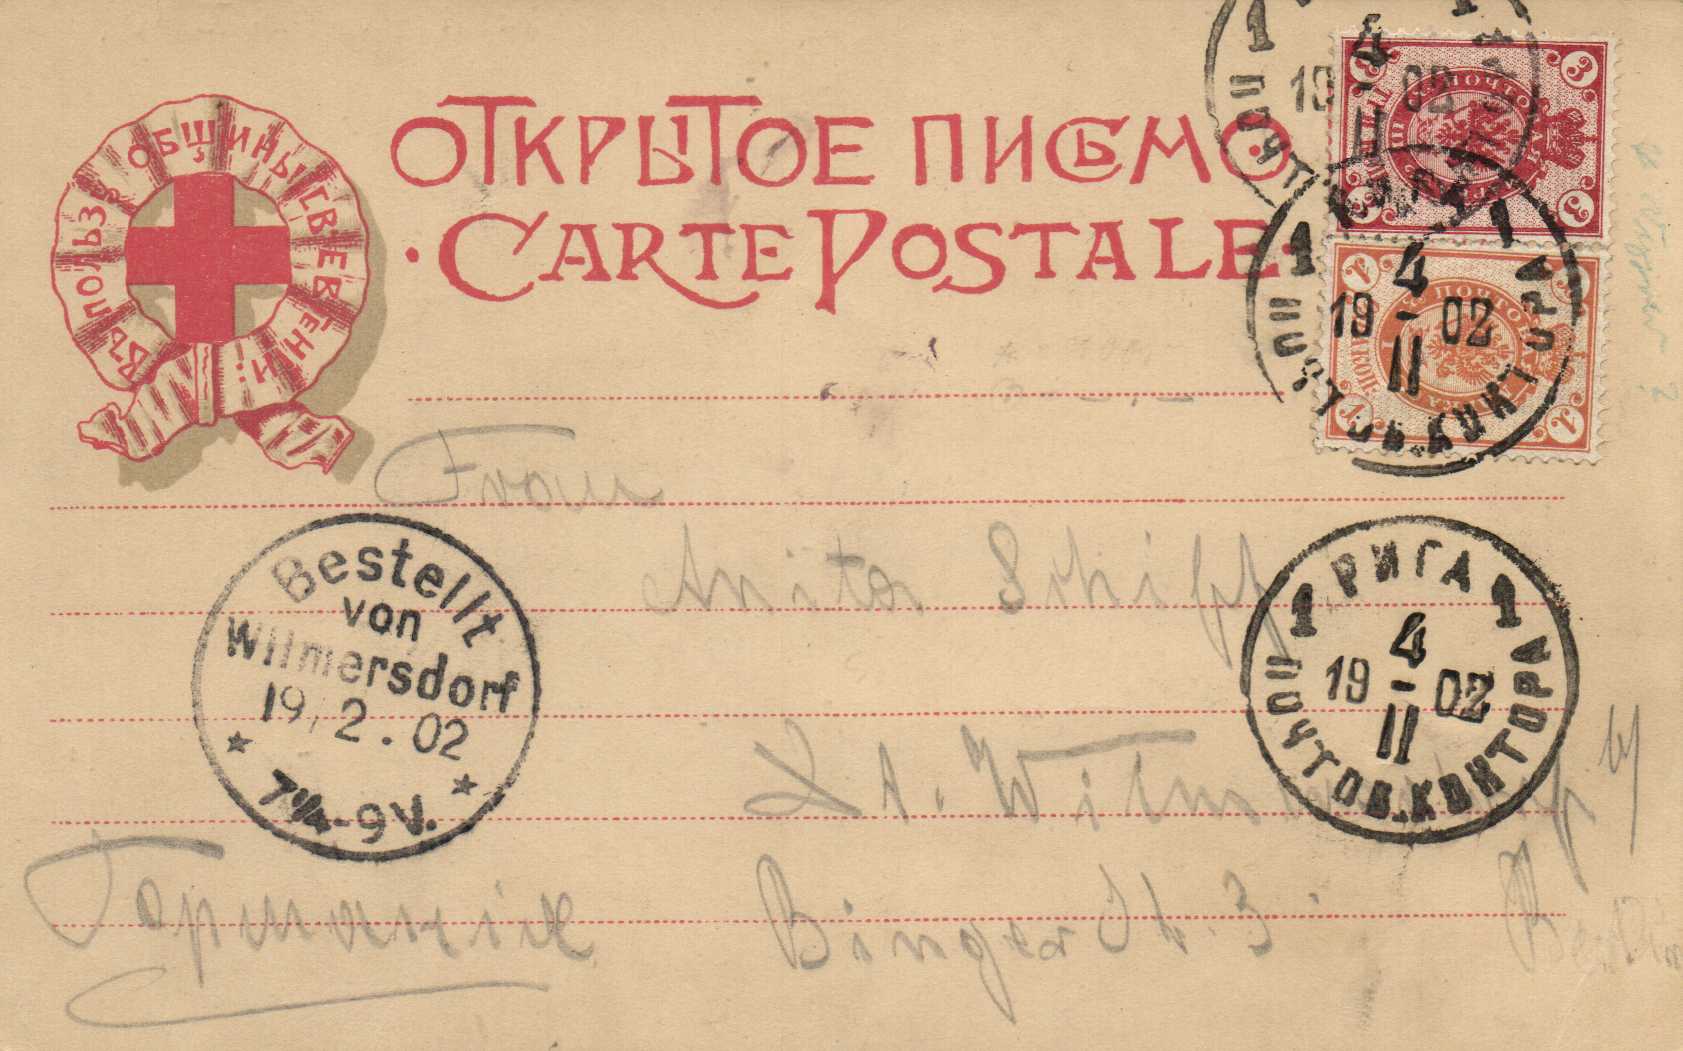 ОТКРЫТОЕ ПИСЬМО
CARTE POSTALE
ВЪ ПОЛЬЗУ ОБЩИНЫ СВ. ЕВГЕНІИ.
1 4 1
19 - 02
II
ПОЧТ
3
3
3
РИГА
1 4 1
19 - 02
II
ПОЧТОВ. КОНТОРА
ПОЧТОВАЯ МАРКА
1
1
1
1
Frau
Anita Schiff
Bestellt
von
Wilmersdorf
19/2.02
7¼-9V.
РИГА
1 4 1
19 - 02
II
ПОЧТОВ. КОНТОРА
Binger St. 3
Berlin